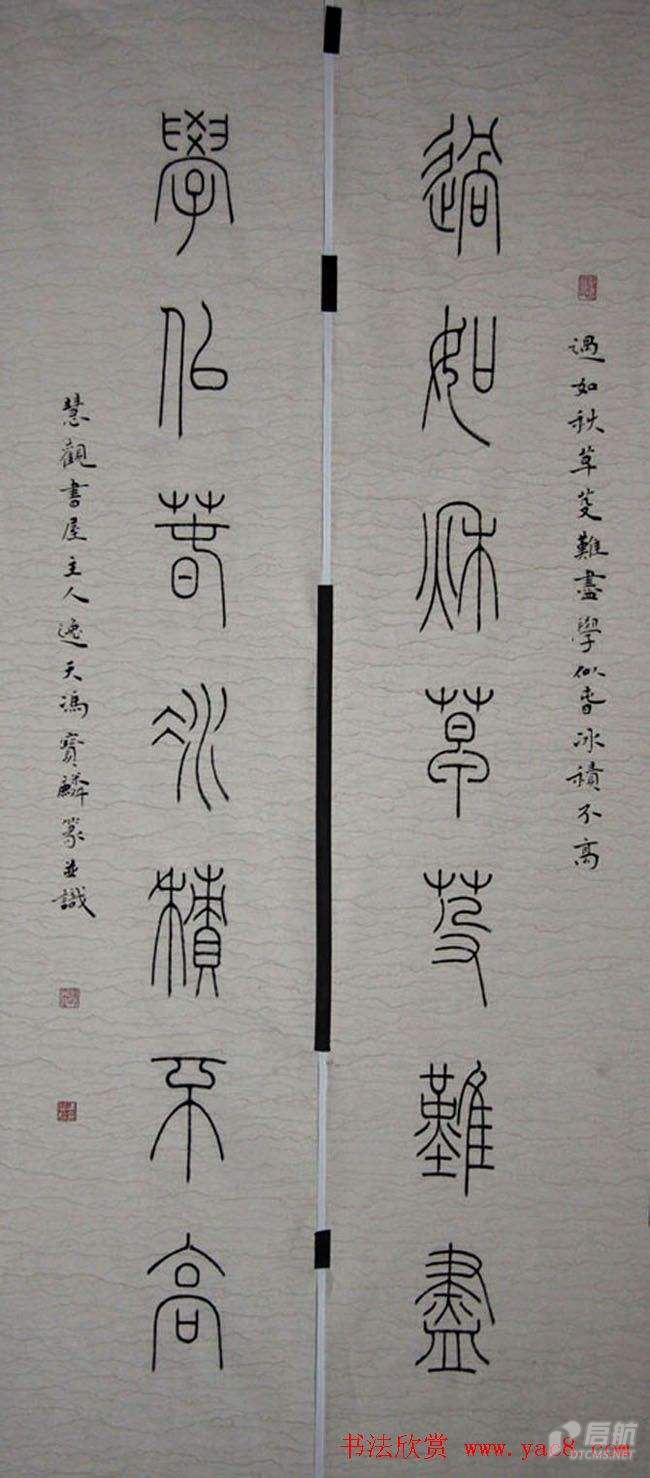 過如秋草芟難盡學似春冰積不高
過如秋草芟難盡
學似春冰積不高
慧觀書屋主人逸天馮寶麟篆並識
书法欣赏 www.yac8.com
启航
DTCMS.NET